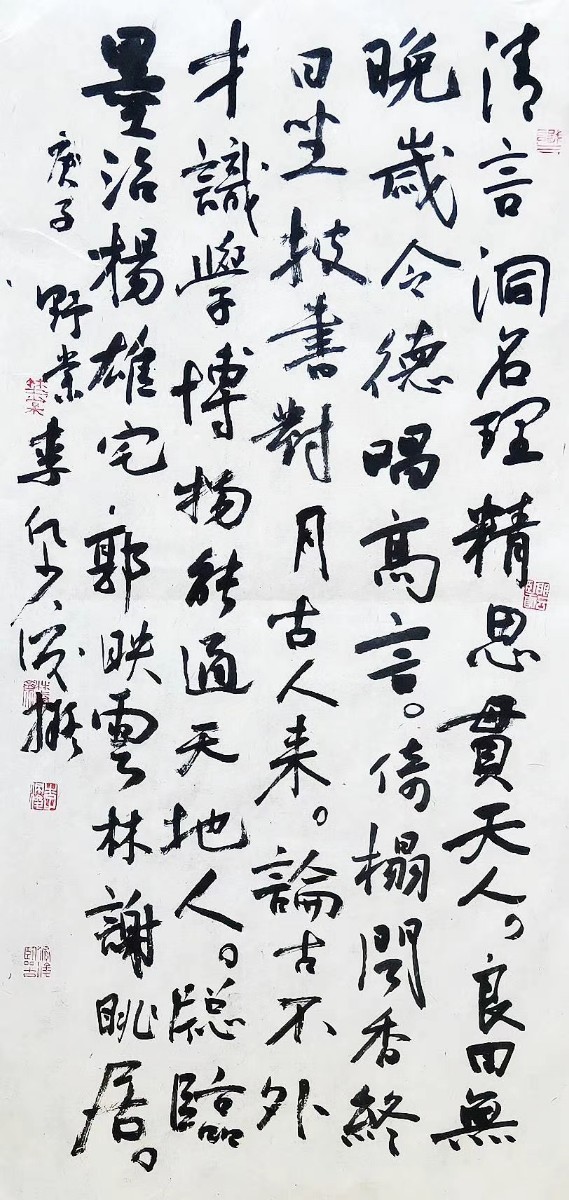 清言洞名理精思貫天人。良田無
晚歲令德唱高言。倚榻聞香終
日坐披書對月古人来。論古不外
才識學博物能通天地人。牕臨
墨沼楊雄宅郭映雲林謝眺居。
庚子 野棠李